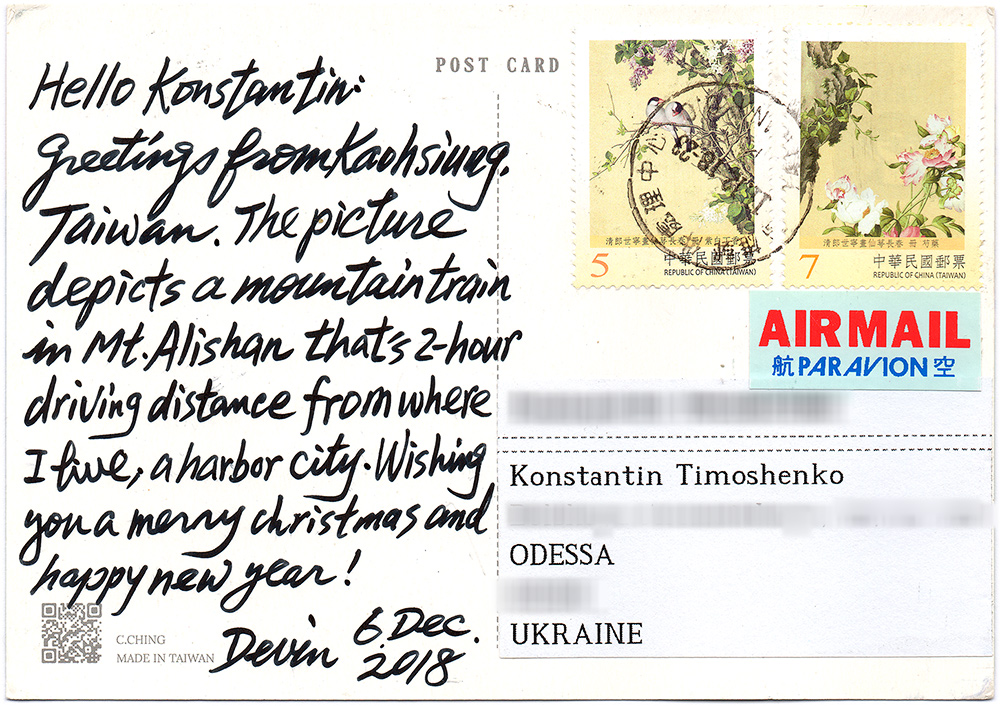 POST CARD
Hello Konstantin:
Greetings from Kaohsiung,
Taiwan. The picture
depicts a mountain train
in Mt. Alishan that's 2-hour
driving distance from where
I live, a harbor city. Wishing
you a merry christmas and
happy new year!
Devin 6. Dec.
2018
C.CHING
MADE IN TAIWAN
5
中華民國郵票
REPUBLIC OF CHINA (TAIWAN)
清郎世寧畫仙萼長春 冊 芍藥
7
中華民國郵票
REPUBLIC OF CHINA (TAIWAN)
AIR MAIL
航 PAR AVION 空
Konstantin Timoshenko
ODESSA
UKRAINE